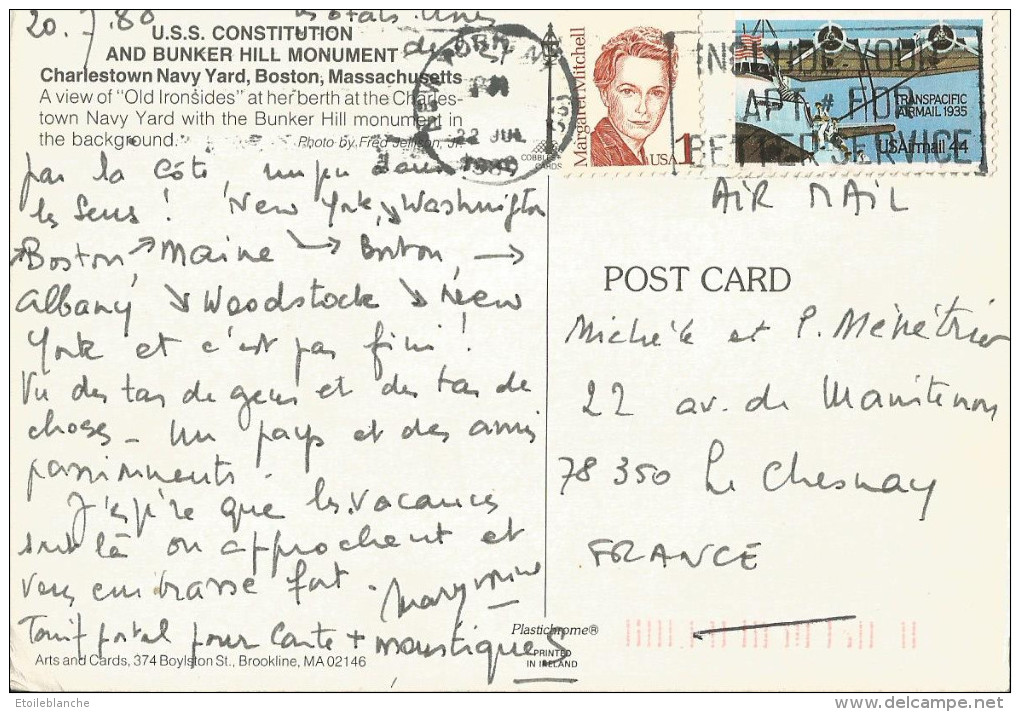 20.7.89
les états-unis
U.S.S. CONSTITUTION
AND BUNKER HILL MONUMENT
Charlestown Navy Yard, Boston, Massachusetts
A view of "Old Ironsides" at her berth at the Charles-
town Navy Yard with the Bunker Hill monument in
the background.
Photo by Fred Jellison, Jr.
par la Côte, un peu dans tous
les sens ! New York, ↘ Washington
↗ Boston, ↗ Maine → Boston, →
Albany ↘ Woodstock ↘ New
York et c'est pas fini !
Vu des tas de gens et des tas de
choses - Un pays et des amis
passionnants.
J'espère que les vacances
sont là ou approchent et
vous embrasse fort.
Tarif postal pour Carte + moustiques
Arts and Cards, 374 Boylston St., Brookline, MA 02146
NEW YORK, NY
PM
22 JUL
1989
COBBLE
CARDS
Margaret Mitchell
USA 1
INCLUDE YOUR
APT # FOR
BETTER SERVICE
TRANSPACIFIC
AIRMAIL 1935
USAirmail 44
AIR MAIL
POST CARD
Michèle et P. Ménétrier
22 av. de Maintenon
78 350 Le Chesnay
FRANCE
Plastichrome®
PRINTED
IN IRELAND
Etoileblanche